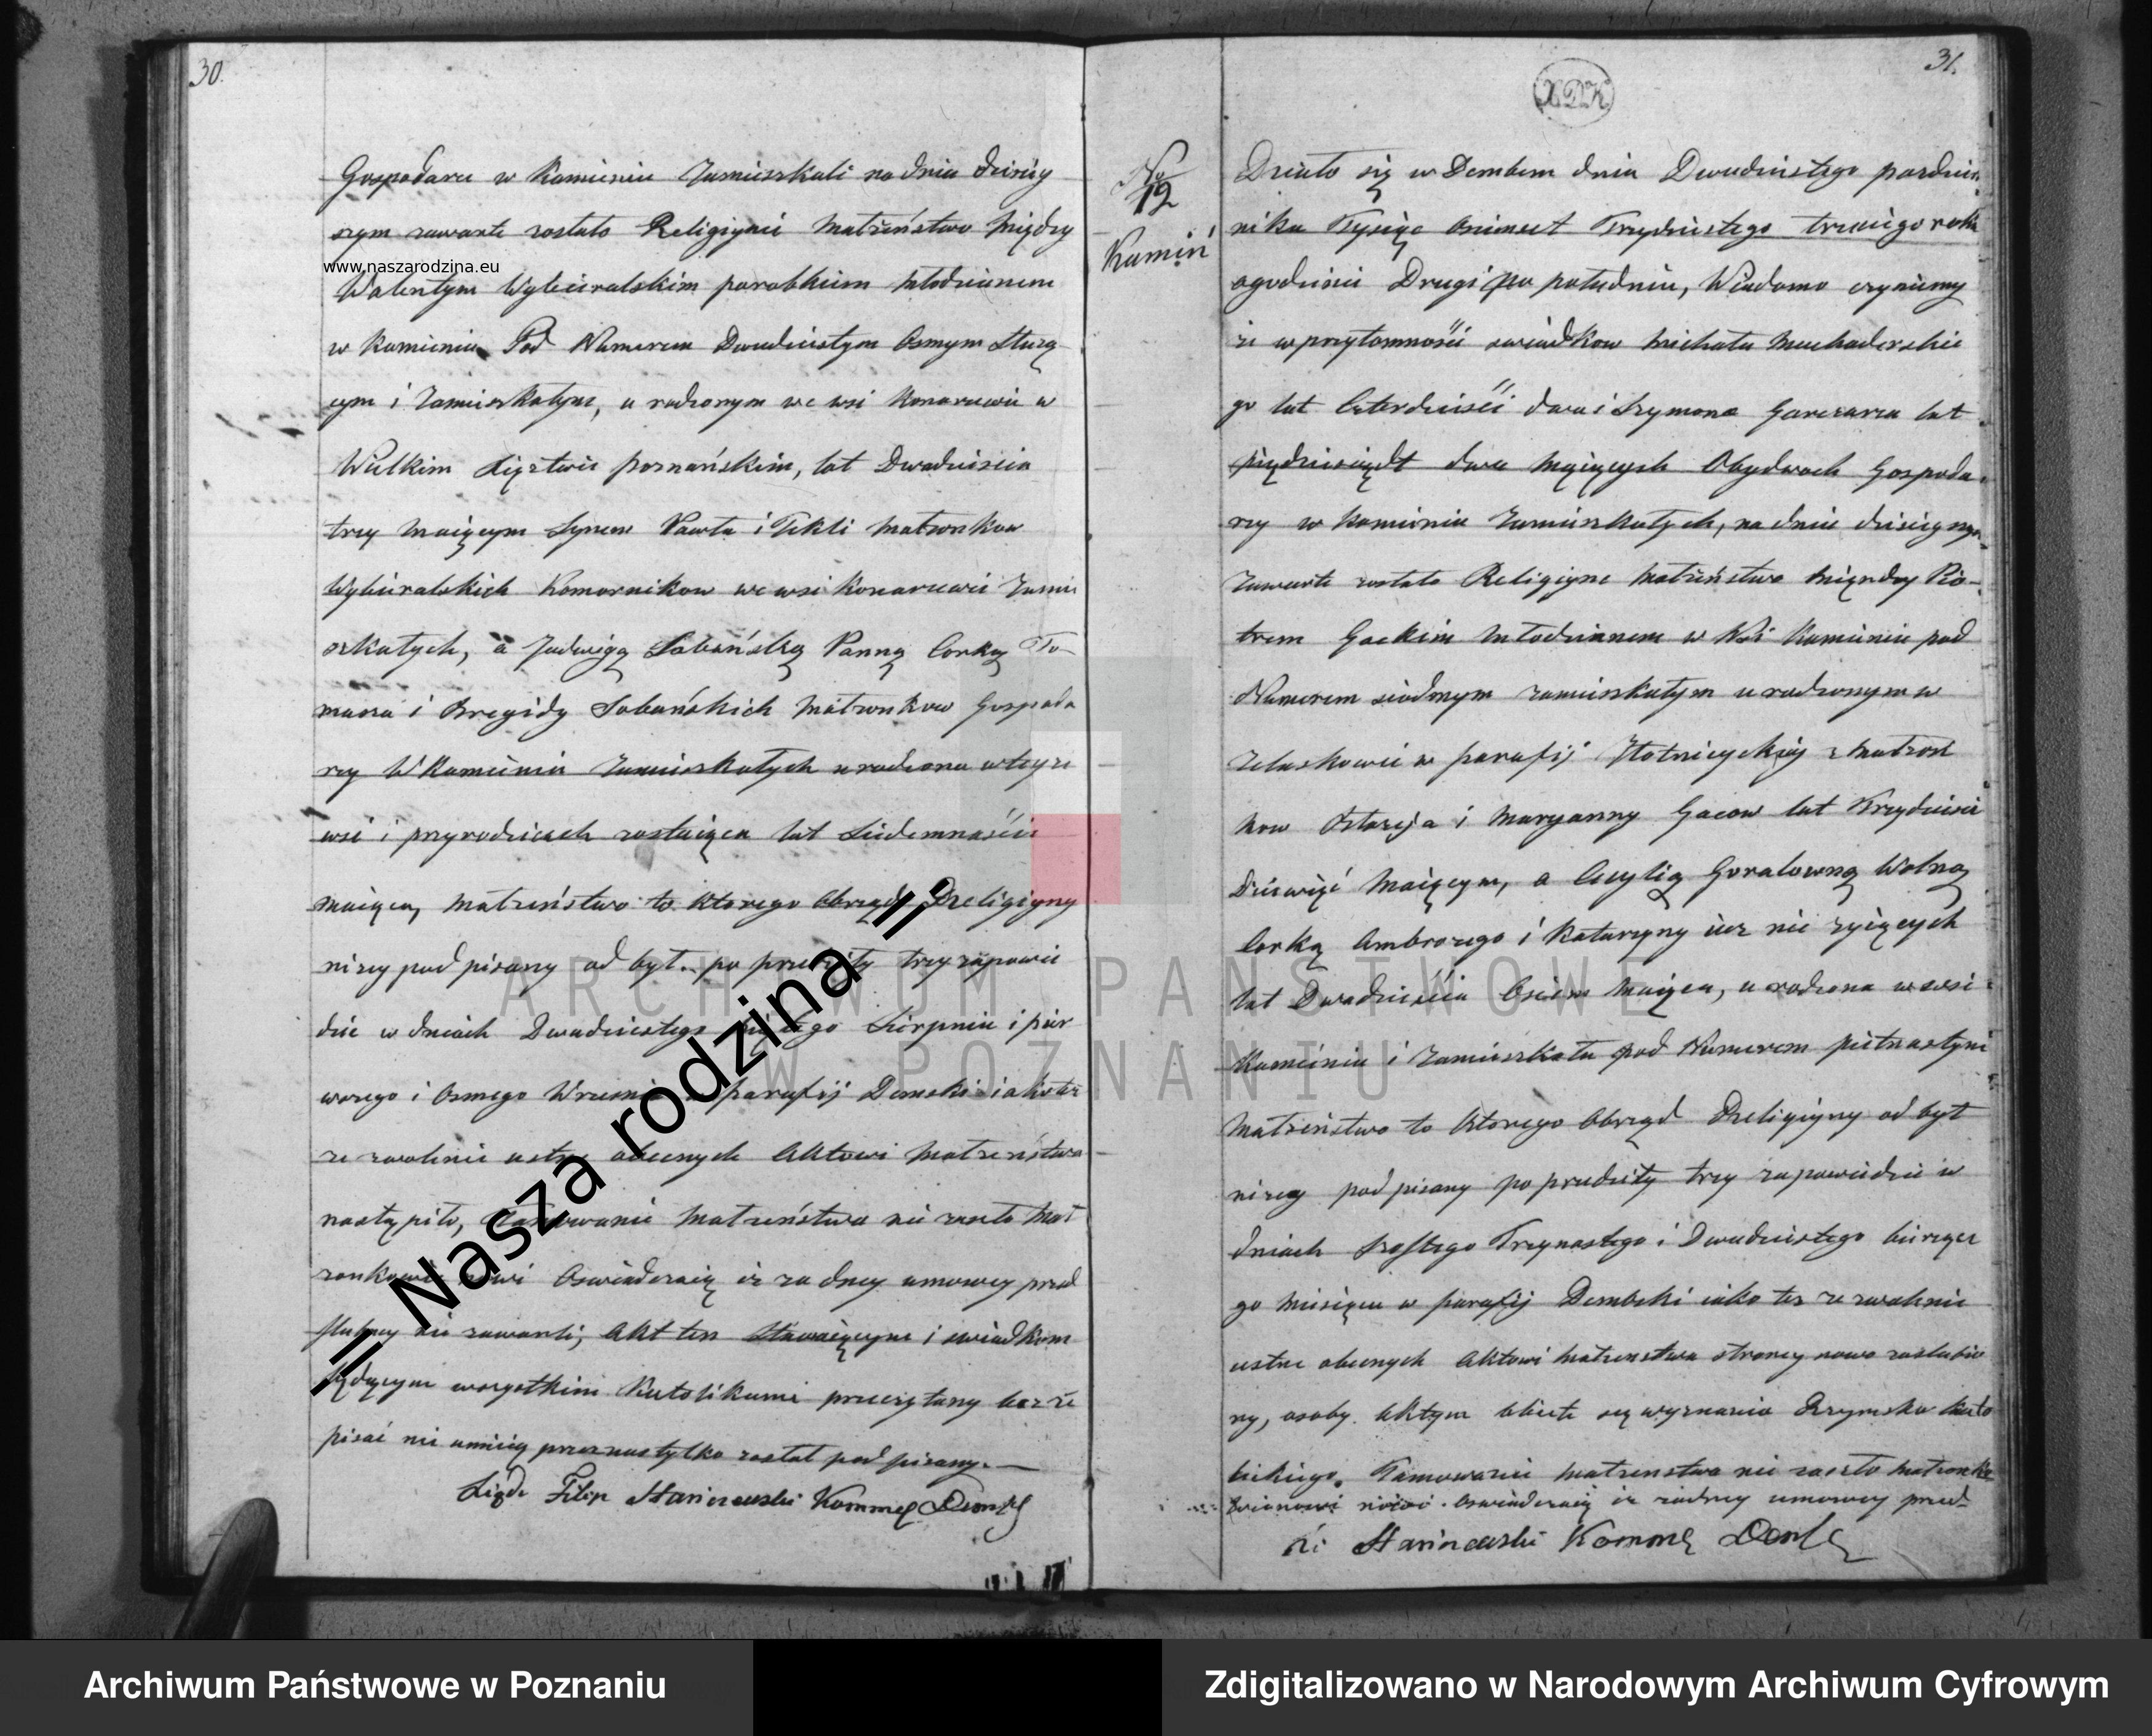 30.
Gospodarze w Kamieniu Zamieszkali na dniu dzisiey
szym zawarte zostało Religiyne Małżeństwo między
www.naszarodzina.eu
Walentym Wybieralskim parobkiem młodzianem
w Kamieniu Pod Numerem Dwudziestym Osmym Służą
cym i Zamieszkałym, urodzonym we wsi Konarzewie w
Wielkim Xięztwie poznańskim, lat Dwadzieścia
trzy maiącym Synem Pawła i Tekli małżonkow
Wybieralskich Komornikow we wsi Konarzewie Zamie
szkałych, a Jadwigą Sobańską Panną Corką To-
masza i Bregidy Sobańskich Małżonkow Gospoda
rzy W Kamieniu Zamieszkałych urodzona w teyże
wsi i przy rodzicach zostaiąca lat Siedemnaście
maiąca, małżeństwo to ktorego Obrząd Religiyny
niżey podpisany odbył po trzy zapowie
dzie w dniach Dwudziestego Sierpnia i pier
wszego i Osmego parafij Dembski iakoteż
ze zwolenie ustne obecnych Aktowi małżeństwa
nastąpiło, Tamowanie Małżeństwa nie zaszło Mał
żonkowie nowi Oswiadczaią iż żadney umowey przed
slubney nie zawarli, Akt ten Stawaiącym i swiadkom
będącym wszystkim Katolikami przeczytany lecz że
pisać nie umieią przez nas tylko został podpisany. —
Xiądz Filip Staniszewski Kommę Demby
31.
XDK
No
12
Kamiń
Działo się w Dembem dnia Dwudziestego pazdzier
nika Tysiąc Osimset Trzydziestego trzeciego roku
o godzinie Drugi po południu, Wiadomo czyniemy
iż w przytomności swiadkow Michała Muchaderskie
go lat Czterdzieści dwa i Szymona Garczarza lat
pięćdziesiąt dwa maiących Obydwoch Gospoda-
rzy w Kamieniu Zamieszkałych, na dniu dzisieyszym
Zawarte zostało Religiyne Małżeństwo między Pio-
trem Gackim młodzianem w Wsi Kamieniu pod
Numerem siodmym zamieszkałym urodzonym w
Zelaskowie w parafij Złotnickiey z Małżon
kow i Maryanny Gacow lat Trzydzieści
Dziewięć Maiącym, a Cecylią Goralowną Wolną
Corką Ambrożego i Katarzyny iuż nie żyiących
lat Dwadzieścia Osiem maiąca, urodzona we wsi
Kamieniu i Zamieszkała pod Numerem pietnastym
Małżeństwo to Ktorego Obrząd Religiyny odbył
niżey podpisany po trzy zapowiedzie w
dniach Szostego Trzynastego i Dwudziestego bieżące
go miesiąca w parafij Dembski iako też ze zwolenie
ustne obecnych Aktowi małżenstwa strony nowo zaslubio
ny, osoby Aktym obiete są wyznania Rzymsko kato
lickiego. Tamowanie małżenstwa nie zaszło małżonko
wie nowi Oswiadczaią iż żadney umowey przed-
Xi Staniszewski Kommę Demby
ARCHIWUM PAŃSTWOWE
W POZNANIU
|| Nasza rodzina ||
Archiwum Państwowe w Poznaniu
Zdigitalizowano w Narodowym Archiwum Cyfrowym